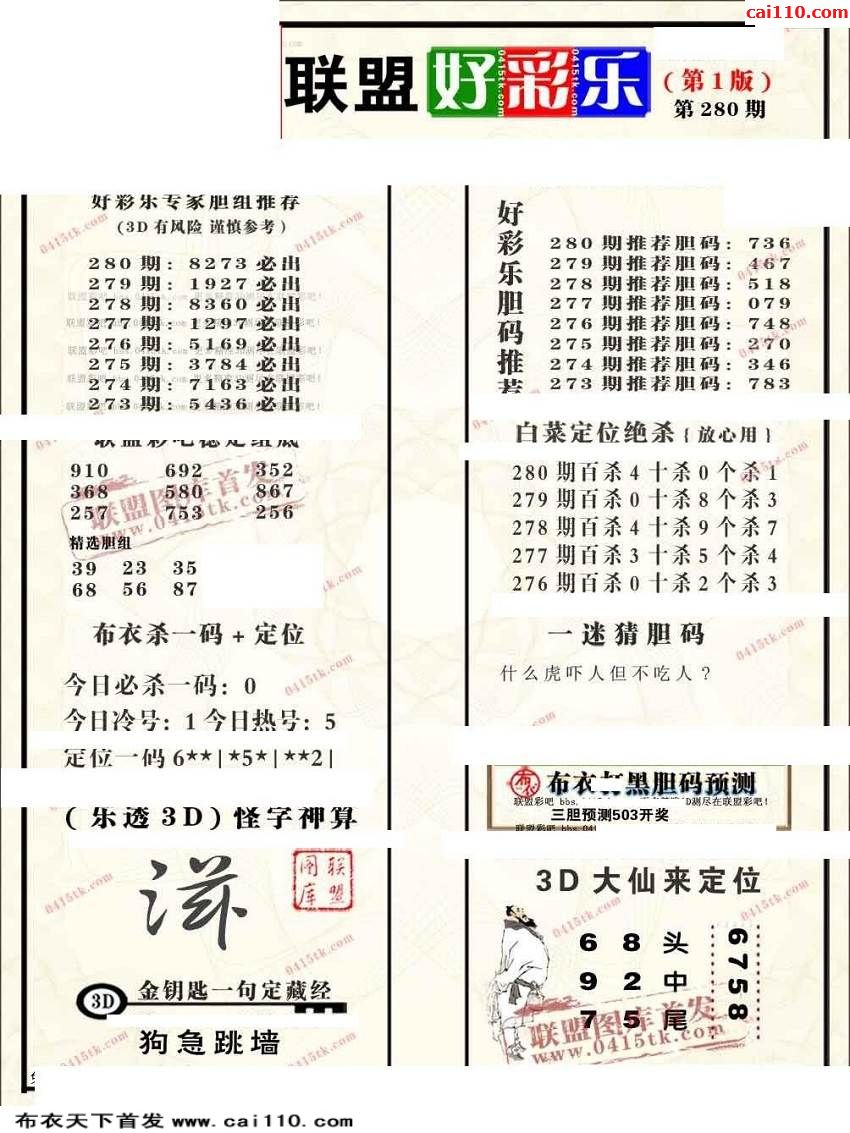 cai110.com
联盟好彩乐
(第1版)
第280期
好彩乐专家胆组推荐
(3D有风险 谨慎参考)
280期: 8273必出
279期: 1927必出
278期: 8360必出
277期: 1297必出
276期: 5169必出
275期: 3784必出
274期: 7163必出
273期: 5436必出
联盟彩吧稳定组底
910 692 352
368 580 867
257 753 256
精选胆组
39 23 35
68 56 87
布衣杀一码+定位
今日必杀一码: 0
今日冷号: 1 今日热号: 5
定位一码 6**|*5*|**2|
(乐透3D)怪字神算
联盟图库
3D 金钥匙一句定藏经
狗急跳墙
好彩乐胆码推荐
280期推荐胆码: 736
279期推荐胆码: 467
278期推荐胆码: 518
277期推荐胆码: 079
276期推荐胆码: 748
275期推荐胆码: 270
274期推荐胆码: 346
273期推荐胆码: 783
白菜定位绝杀{放心用}
280期百杀4十杀0个杀1
279期百杀0十杀8个杀3
278期百杀4十杀9个杀7
277期百杀3十杀5个杀4
276期百杀0十杀2个杀3
一迷猜胆码
什么虎吓人但不吃人?
布衣打黑胆码预测
三胆预测503开奖
3D大仙来定位
6 8 头
9 2 中
7 5 尾
6758
联盟图库首发
www.0415tk.com
布衣天下首发 www.cai110.com